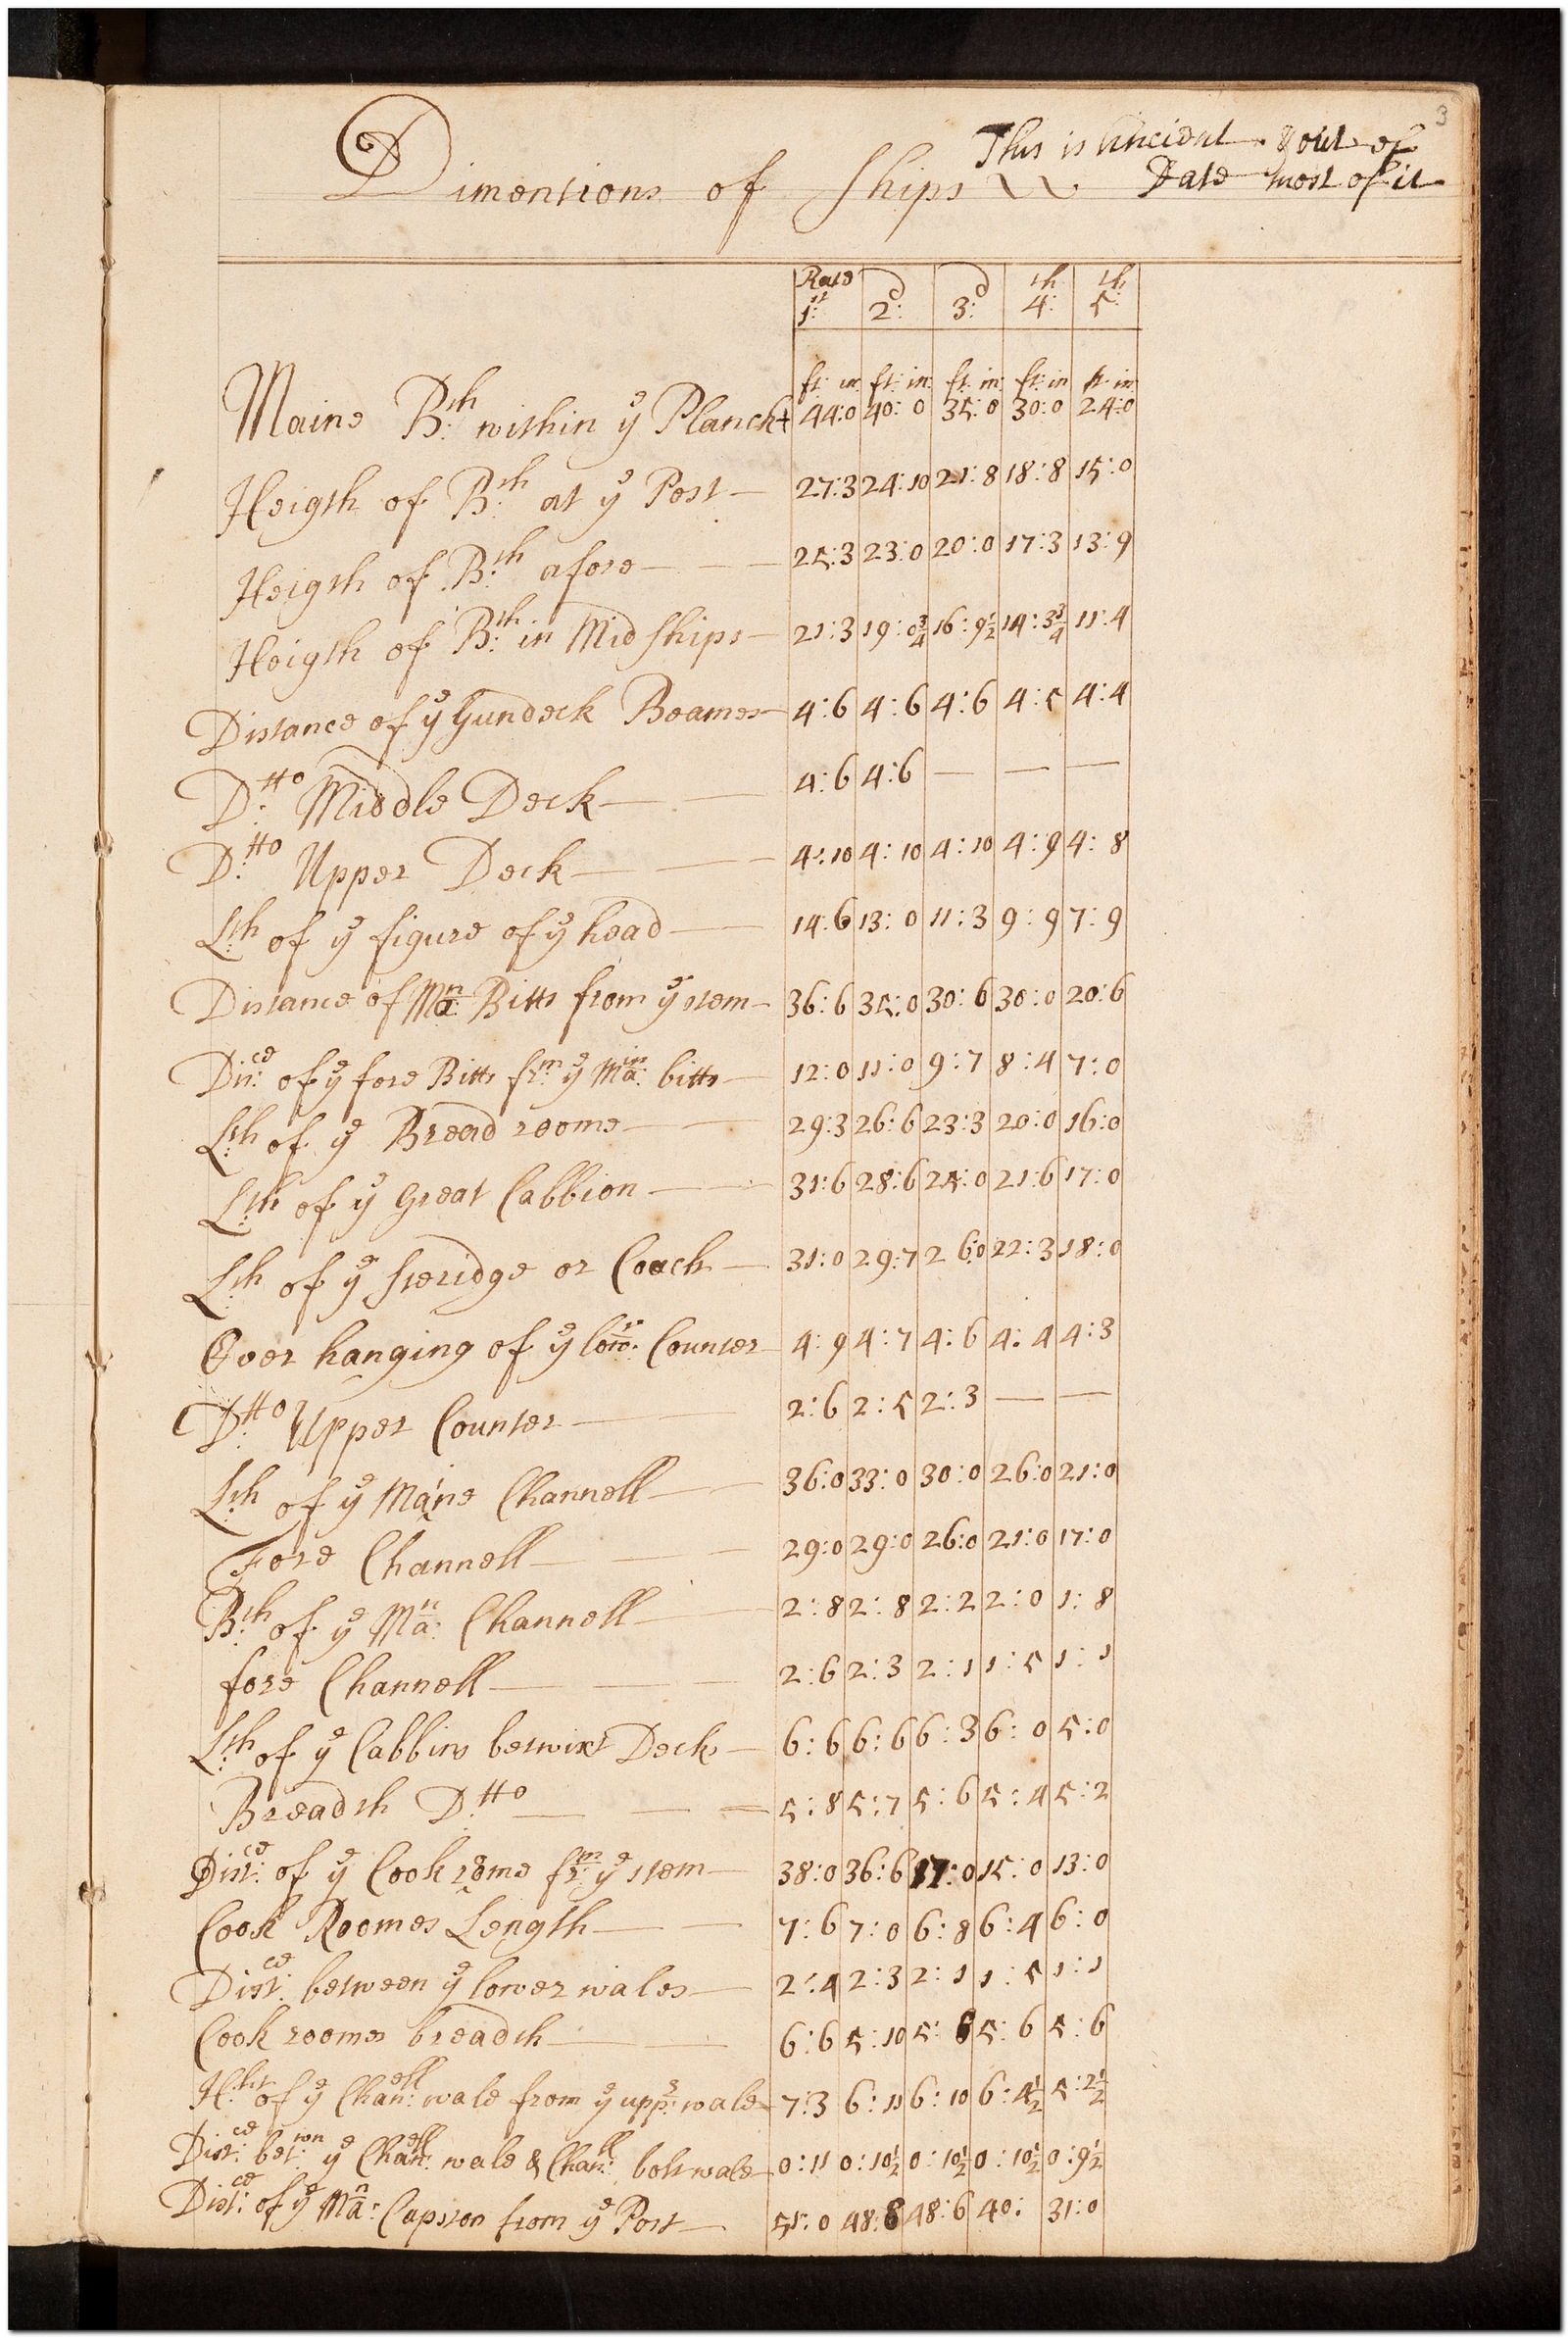 3
This is Ancient & out of
Dimentions of Ships Date most of it
Rate
1st 2d 3d 4th 5th
ft: in ft: in ft: in ft: in ft: in
Maine Bth within ye Planck 44:0 40:0 35:0 30:0 24:0
Heigth of Bth at ye Post 27:3 24:10 21:8 18:8 15:0
Heigth of Bth afore 25:3 23:0 20:0 17:3 13:9
Heigth of Bth in Midships 21:3 19:0¾ 16:9½ 14:3¾ 11:4
Distance of ye Gundeck Beames 4:6 4:6 4:6 4:5 4:4
Dtto Middle Deck 4:6 4:6 — — —
Dtto Upper Deck 4:10 4:10 4:10 4:9 4:8
Lth of ye figure of ye head 14:6 13:0 11:3 9:9 7:9
Distance of Man Bitts from ye stem 36:6 35:0 30:6 30:0 20:6
Disce of ye fore Bitts frm ye Main bitts 12:0 11:0 9:7 8:4 7:0
Lth of ye Bread roome 29:3 26:6 23:3 20:0 16:0
Lth of ye Great Cabbion 31:6 28:6 25:0 21:6 17:0
Lth of ye steridge or Coach 31:0 29:7 26:0 22:3 18:0
Over hanging of ye lowr Counter 4:9 4:7 4:6 4:4 4:3
Dtto Upper Counter 2:6 2:5 2:3 — —
Lth of ye Maine Channell 36:0 33:0 30:0 26:0 21:0
Fore Channell 29:0 29:0 26:0 21:0 17:0
Bth of ye Man Channell 2:8 2:8 2:2 2:0 1:8
fore Channell 2:6 2:3 2:1 1:5 1:1
Lth of ye Cabbins betwixt Deck 6:6 6:6 6:3 6:0 5:0
Breadth Dtto 5:8 5:7 5:6 5:4 5:2
Distce of ye Cook roome frm ye stem 38:0 36:6 17:0 15:0 13:0
Cook Roomes Length 7:6 7:0 6:8 6:4 6:0
Distce between ye lower wales 2:4 2:3 2:1 1:5 1:1
Cook roomes breadth 6:6 5:10 5:8 5:6 5:6
Hht of ye Chanell wale from ye uppr wale 7:3 6:11 6:10 6:4½ 5:2½
Distce betwn ye Chanell wale & Chanll bolt wale 0:11 0:10½ 0:10½ 0:10½ 0:9½
Distce of ye Man Capston from ye Post 51:0 48:8 48:6 40: 31:0